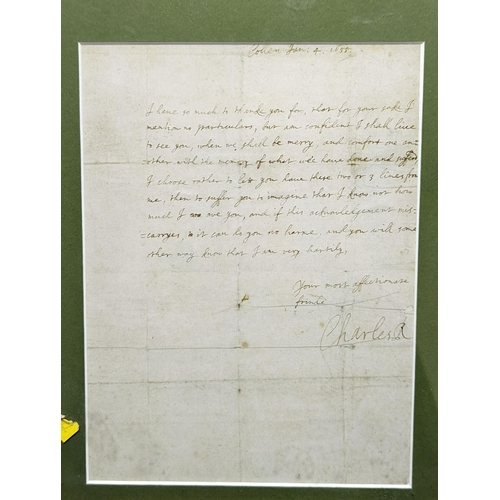 Colen Jan: 4. 1655.
I have so much to thanke you for, that for your sake I
mention no particulars, but am confident I shall live
to see you, when we shall be merry, and comfort one an-
other with the memory of what we have done and suffred
I choose rather to lett you have these two or 3 lines from
me, then to suffer you to imagine that I know not how
much I owe you, and if this acknowledgement mis-
=carrye, it can do you no harme, and you will some
other way know that I am very hertily,
Your most affectionate
frinde
Charles R